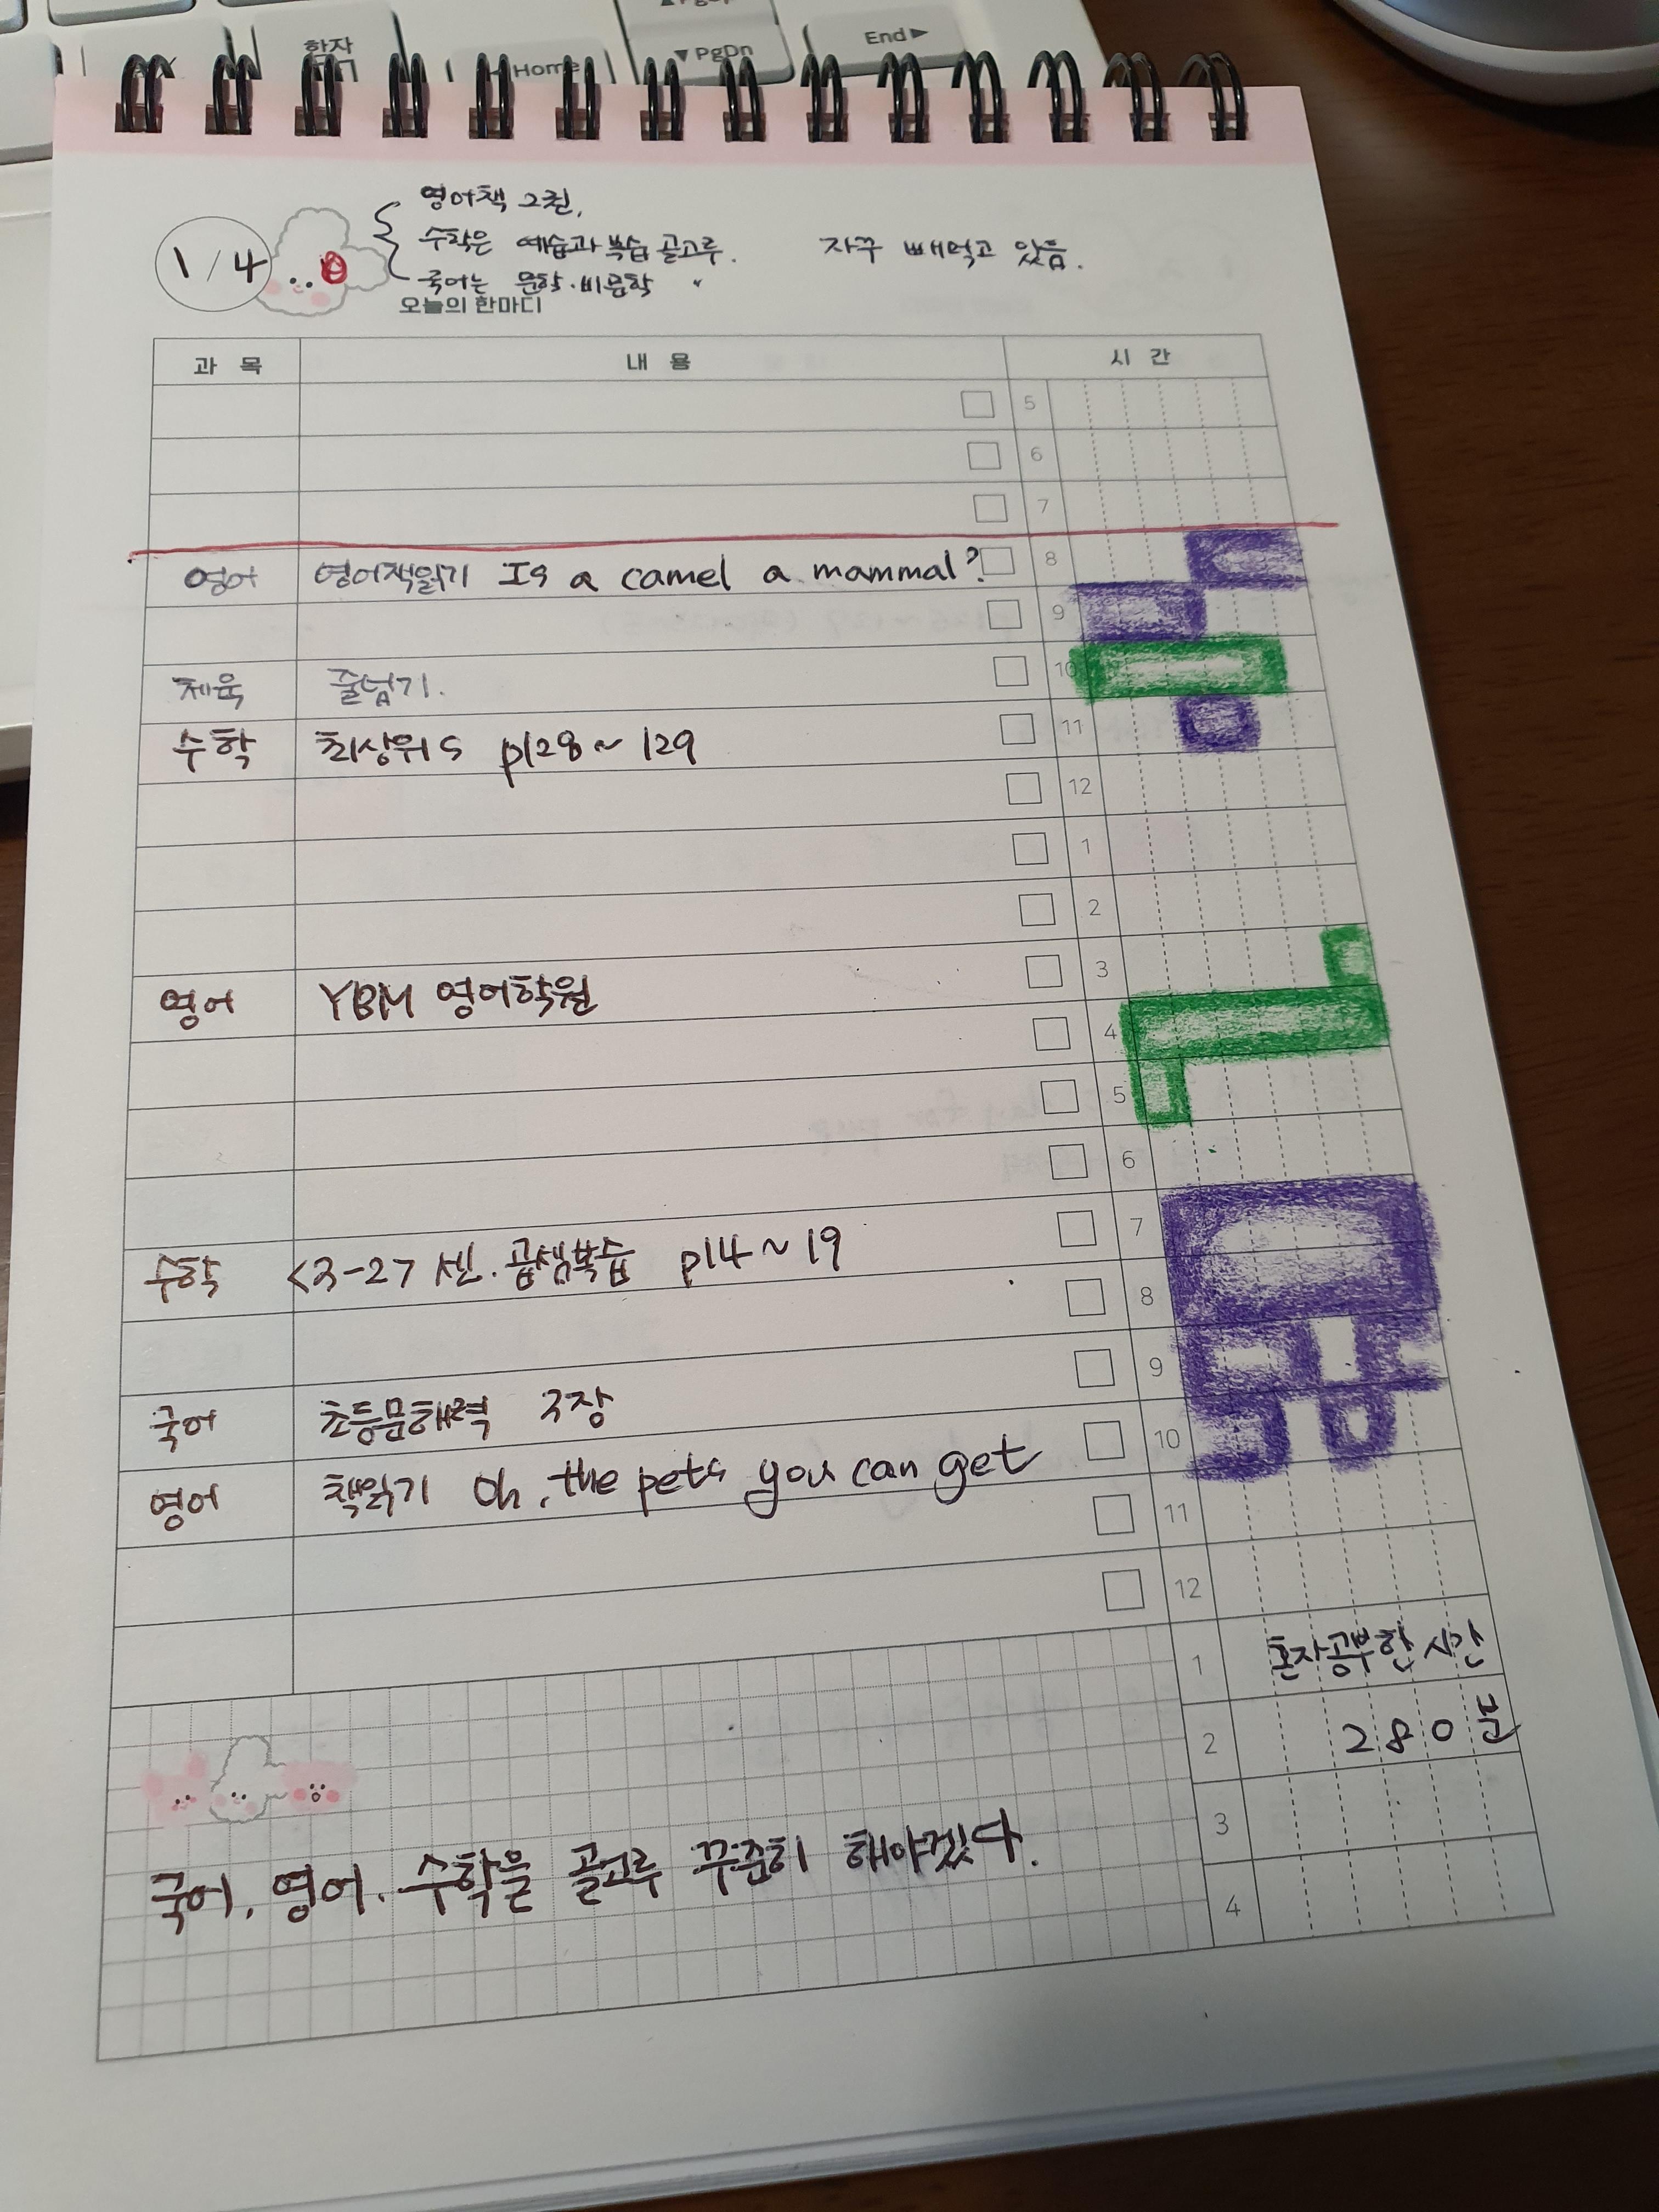 한자
Home
▼PgDn
End▶
영어책 2권,
수학은 예습과 복습 골고루. 자꾸 빼먹고 있음.
1/4
국어는 문학·비문학 〃
오늘의 한마디
과 목 내 용 시 간
5
6
7
영어 영어책읽기 Is a camel a mammal? 8
9
체육 줄넘기. 10
수학 최상위S p128~129 11
12
1
2
영어 YBM 영어학원 3
4
5
6
수학 <3-2> 센. 곱셈복습 p14~19 7
8
9
국어 초등문해력 3장 10
영어 책읽기 Oh, the pets you can get 11
12
1 혼자공부한 시간
2 280분
3
4
국어, 영어, 수학을 골고루 꾸준히 해야겠다.